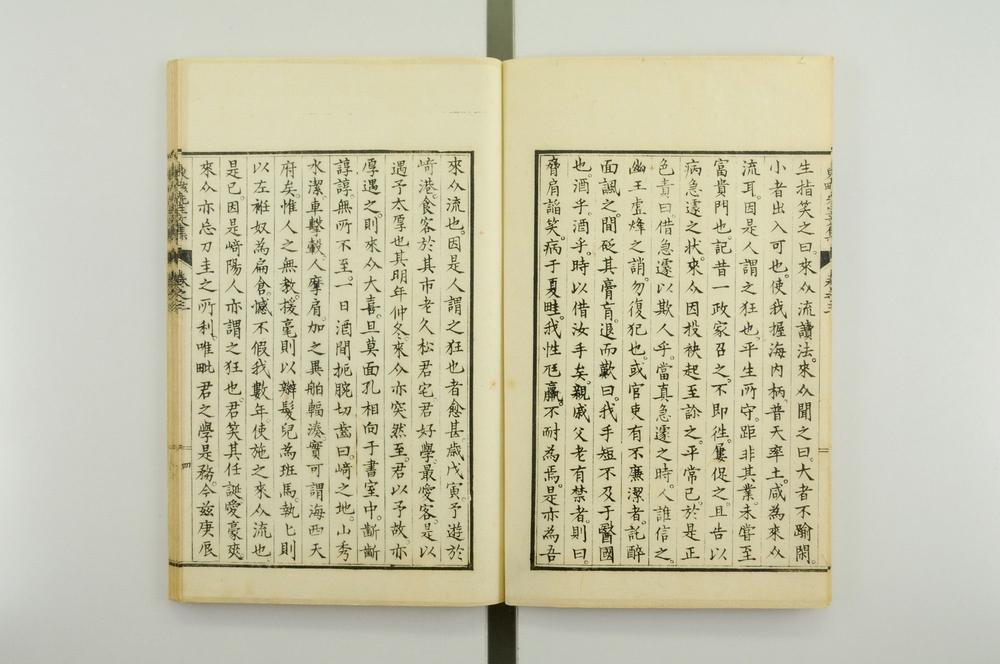 生指笑之曰。來尒流讀法。來尒聞之曰。大者不踰閑。
小者出入可也。使我握海內柄。普天率土。咸為來尒
流耳。因是人謂之狂也。平生所守。距非其業。未嘗至
富貴門也。記昔一政家召之。不即徃。屢促之。且告以
病急遽之狀。來尒因投袂起至診之。平常已。於是正
色責曰。借急遽以欺人乎。當真急遽之時。人誰信之。
幽王虛烽之誚。勿復犯也。或官吏有不廉潔者。託醉
面諷之間。砭其膏肓。退而歎曰。我手短不及于醫國
也。酒乎。酒乎。時以借汝手矣。親戚父老有禁者。則曰。
脅肩諂笑。病于夏畦。我性尫羸。不耐為焉。是亦為吾
來尒流也。因是人謂之狂也者愈甚。歲戊寅。予遊於
﨑港。食客於其市老久松君宅。君好學。最愛客。是以
遇予太厚也。其明年仲冬。來尒亦突然至。君以予故。亦
厚遇之。則來尒大喜。旦莫面孔相向于書室中。齗齗
諄諄。無所不至。一日酒間扼腕切齒曰。﨑之地。山秀
水潔。車擊轂。人摩肩。加之異舶輻湊。實可謂海西天
府矣。惟人之無教。援毫則以辮髮兒為班馬。執匕則
以左衽奴為扁倉。憾不假我數年。使施之來尒流也。
是已。因是﨑陽人亦謂之狂也。君笑其任誕。愛豪爽
來尒亦忘刀圭之所利。唯毗君之學是務。今茲庚辰
卷之三
四